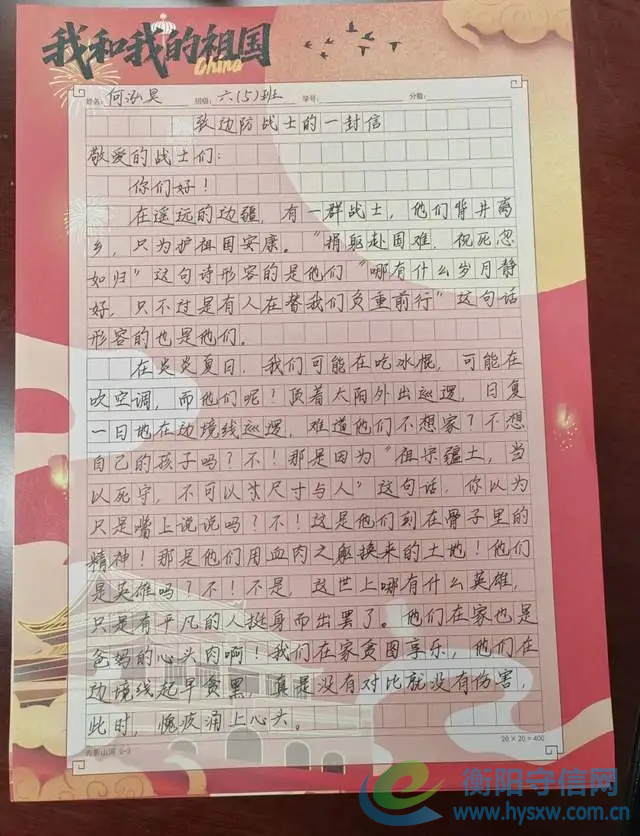 我和我的祖国
China
姓名: 何泓昊 班级: 六(5)班 学号: 分数:
致边防战士的一封信
敬爱的战士们:
你们好!
在遥远的边疆,有一群战士,他们背井离
乡,只为护祖国安康。“捐躯赴国难,视死忽
如归”这句诗形容的是他们“哪有什么岁月静
好,只不过是有人在替我们负重前行”这句话
形容的也是他们。
在炎炎夏日,我们可能在吃冰棍,可能在
吹空调,而他们呢!顶着太阳外出巡逻,日复
一日地在边境线巡逻,难道他们不想家?不想
自己的孩子吗?不!那是因为“祖宗疆土,当
以死守,不可以尺寸与人”这句话,你以为
只是嘴上说说吗?不!这是他们刻在骨子里的
精神!那是他们用血肉之躯换来的土地!他们
是英雄吗?不!不是,这世上哪有什么英雄,
只是有平凡的人挺身而出罢了。他们在家也是
爸妈的心头肉啊!我们在家贪图享乐,他们在
边境线起早贪黑,真是没有对比就没有伤害,
此时,愧疚涌上心头。
20×20=400
衡阳守信网
www.hysxw.com.cn